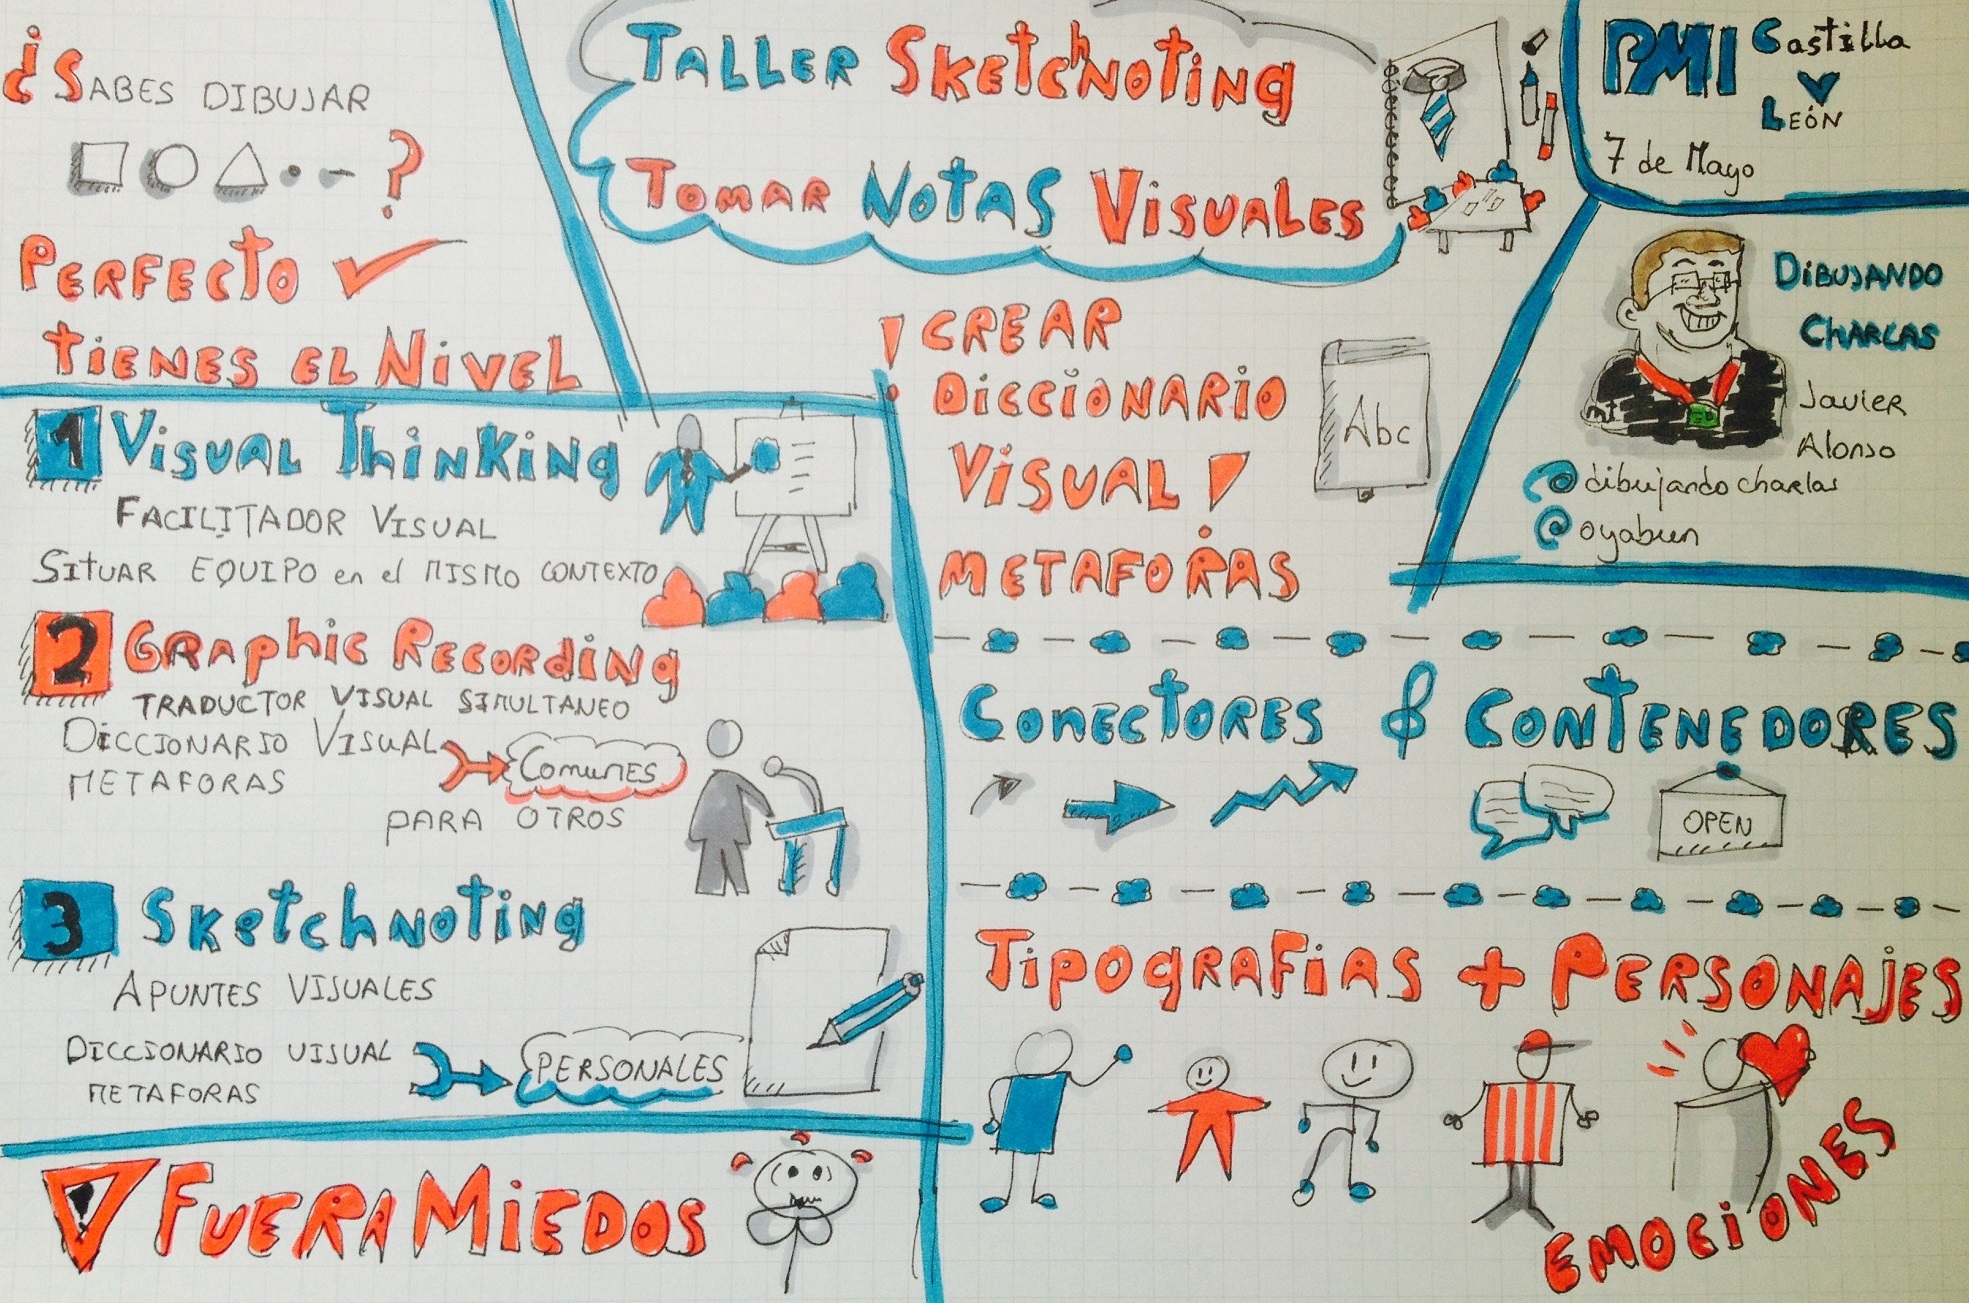 ¿SABES DIBUJAR
?
PERFECTO
TIENES EL NIVEL
TALLER SKETCHNOTING
TOMAR NOTAS VISUALES
PMI Castilla
y
LEÓN
7 de Mayo
DIBUJANDO
CHARLAS
Javier
Alonso
@dibujandocharlas
@oyabun
1 VISUAL THINKING
FACILITADOR VISUAL
SITUAR EQUIPO en el MISMO CONTEXTO
2 GRAPHIC RECORDING
TRADUCTOR VISUAL SIMULTANEO
DICCIONARIO VISUAL
METAFORAS
COMUNES
PARA OTROS
3 SKETCHNOTING
APUNTES VISUALES
DICCIONARIO VISUAL
METAFORAS
PERSONALES
! FUERA MIEDOS
! CREAR
DICCIONARIO
VISUAL !
METAFORAS
Abc
CONECTORES & CONTENEDORES
OPEN
TIPOGRAFIAS + PERSONAJES
EMOCIONES